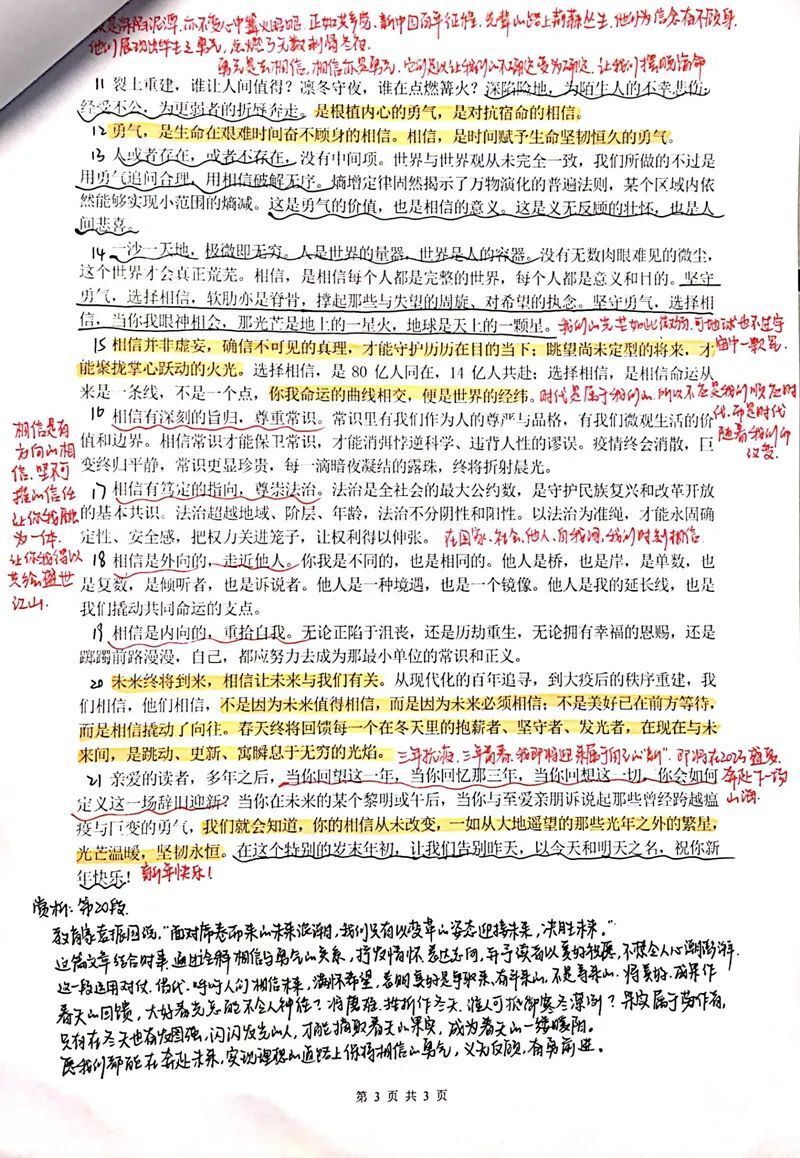 他们展现出毕生之勇气,点燃了无数刺骨冬夜.
11 裂土重建,谁让人间值得?凛冬守夜,谁在点燃篝火?深陷险地,为陌生人的不幸悲伤,
经受不公,为更弱者的折辱奔走。是根植内心的勇气,是对抗宿命的相信。
12 勇气,是生命在艰难时间奋不顾身的相信。相信,是时间赋予生命坚韧恒久的勇气。
13 人或者存在,或者不存在,没有中间项。世界与世界观从未完全一致,我们所做的不过是
用勇气追问合理,用相信破解无序。熵增定律固然揭示了万物演化的普遍法则,某个区域内依
然能够实现小范围的熵减。这是勇气的价值,也是相信的意义。这是义无反顾的壮怀,也是人
间悲喜。
14 一沙一天地,极微即无穷。人是世界的量器,世界是人的容器。没有无数肉眼难见的微尘,
这个世界才会真正荒芜。相信,是相信每个人都是完整的世界,每个人都是意义和目的。坚守
勇气,选择相信,软肋亦是脊骨,撑起那些与失望的周旋、对希望的执念。坚守勇气,选择相
信,当你我眼神相会,那光芒是地上的一星火,地球是天上的一颗星。我们的光芒如此微弱,可地球也不过宇
宙中一颗星.
15 相信并非虚妄,确信不可见的真理,才能守护历历在目的当下;眺望尚未定型的将来,才
能聚拢掌心跃动的火光。选择相信,是 80 亿人同在,14 亿人共赴;选择相信,是相信命运从
来是一条线,不是一个点,你我命运的曲线相交,便是世界的经纬。时代是属于我们的,所以不应是我们顺应时
代,而是时代
随着我们而
改变.
16 相信有深刻的旨归,尊重常识。常识里有我们作为人的尊严与品格,有我们微观生活的价
值和边界。相信常识才能保卫常识,才能消弭悖逆科学、违背人性的谬误。疫情终会消散,巨
变终归平静,常识更显珍贵,每一滴暗夜凝结的露珠,终将折射晨光。
相信是有
方向的相
信.坚不可
摧的信任
让你我融
为一体.
让你我得以
共绘盛世
江山.
17 相信有笃定的指向,尊崇法治。法治是全社会的最大公约数,是守护民族复兴和改革开放
的基本共识。法治超越地域、阶层、年龄,法治不分阴性和阳性。以法治为准绳,才能永固确
定性、安全感,把权力关进笼子,让权利得以伸张。在国家、社会、他人、自我间,我们时刻相信.
18 相信是外向的,走近他人。你我是不同的,也是相同的。他人是桥,也是岸,是单数,也
是复数,是倾听者,也是诉说者。他人是一种境遇,也是一个镜像。他人是我的延长线,也是
我们撬动共同命运的支点。
19 相信是内向的,重拾自我。无论正陷于沮丧,还是历劫重生,无论拥有幸福的恩赐,还是
踯躅前路漫漫,自己,都应努力去成为那最小单位的常识和正义。
20 未来终将到来,相信让未来与我们有关。从现代化的百年追寻,到大疫后的秩序重建,我
们相信,他们相信,不是因为未来值得相信,而是因为未来必须相信;不是美好已在前方等待,
而是相信撬动了向往。春天终将回馈每一个在冬天里的抱薪者、坚守者、发光者,在现在与未
来间,是跳动、更新、寓瞬息于无穷的光焰。
奔赴下一场
山海.
21 亲爱的读者,多年之后,当你回望这一年,当你回忆那三年,当你回想这一切,你会如何
定义这一场辞旧迎新?当你在未来的某个黎明或午后,当你与至爱亲朋诉说起那些曾经跨越瘟
疫与巨变的勇气,我们就会知道,你的相信从未改变,一如从大地遥望的那些光年之外的繁星,
光芒温暖,坚韧永恒。在这个特别的岁末年初,让我们告别昨天,以今天和明天之名,祝你新
年快乐!新年快乐!
赏析:第20段.
教育家袁振国说,"面对席卷而来的未来浪潮,我们只有以变革的姿态迎接未来,决胜未来。"
这篇文章结合时事,通过诠释相信与勇气的关系,抒发情怀表达志向,并予读者以美好祝愿,不禁令人心潮澎湃.
春天的回馈,大好春光怎能不令人神往?将磨难、挫折作冬天,谁人可抵御寒冬凛冽?果实属于劳作者,
只有在冬天也奋发图强,闪闪发光的人,才能摘取春天的果实,成为春天的一缕暖阳。
愿我们都能在奔赴未来,实现理想的道路上保持相信的勇气,义无反顾,奋勇前进。
第 3 页 共 3 页